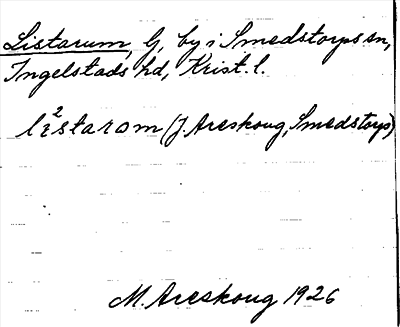 Listarum, G, by i Smedstorps sn,
Ingelstads hd, Krist. l.
li²starom (J. Areskoug, Smedstorp)
M. Areskoug 1926